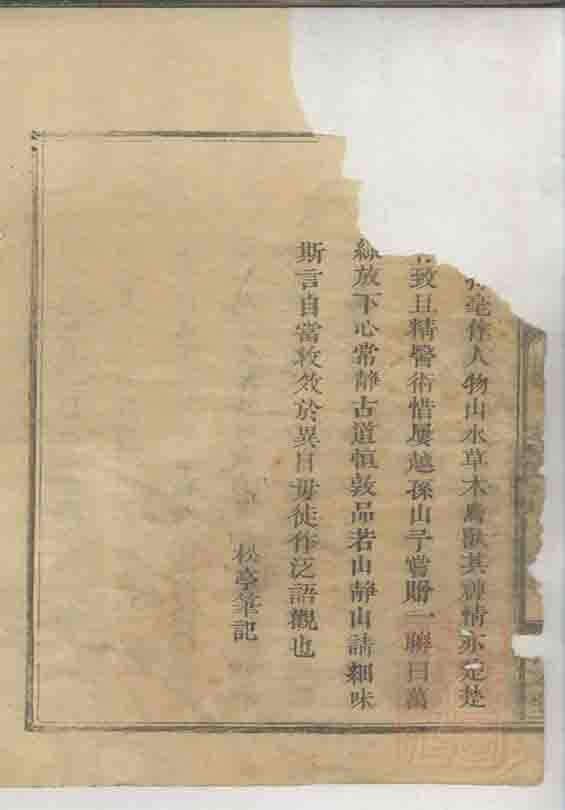 毫作人物山水草木鳥獸其神情亦楚楚
致且精醫術惜屢越孫山予嘗贈一聯曰萬
緣放下心常靜古道恒敦品若山靜山請細味
斯言自當收效於異日毋徒作泛語觀也
松亭筆記